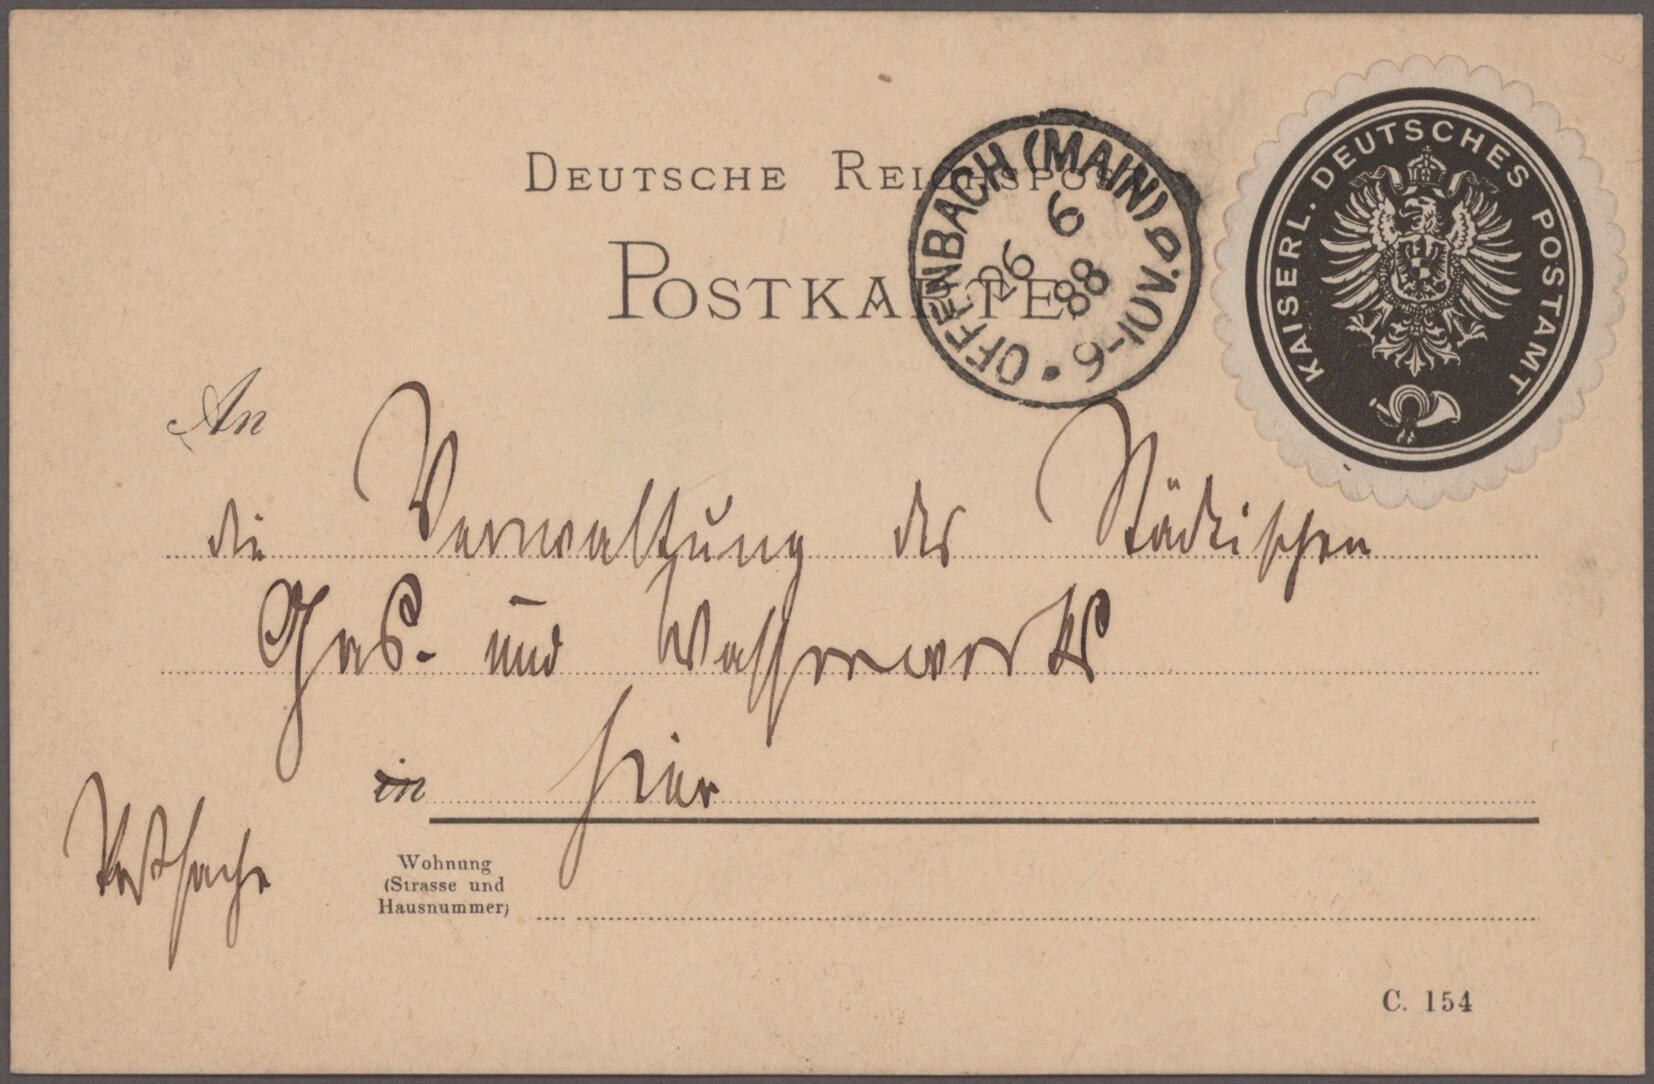 DEUTSCHE REICHSPOST
POSTKARTE
OFFENBACH (MAIN)
26
6
88
9-10V.
KAISERL. DEUTSCHES POSTAMT
An
die Verwaltung des Städtischen
Gas- und Wasserwerks
in hier
Postsache
Wohnung
(Strasse und
Hausnummer)
C. 154